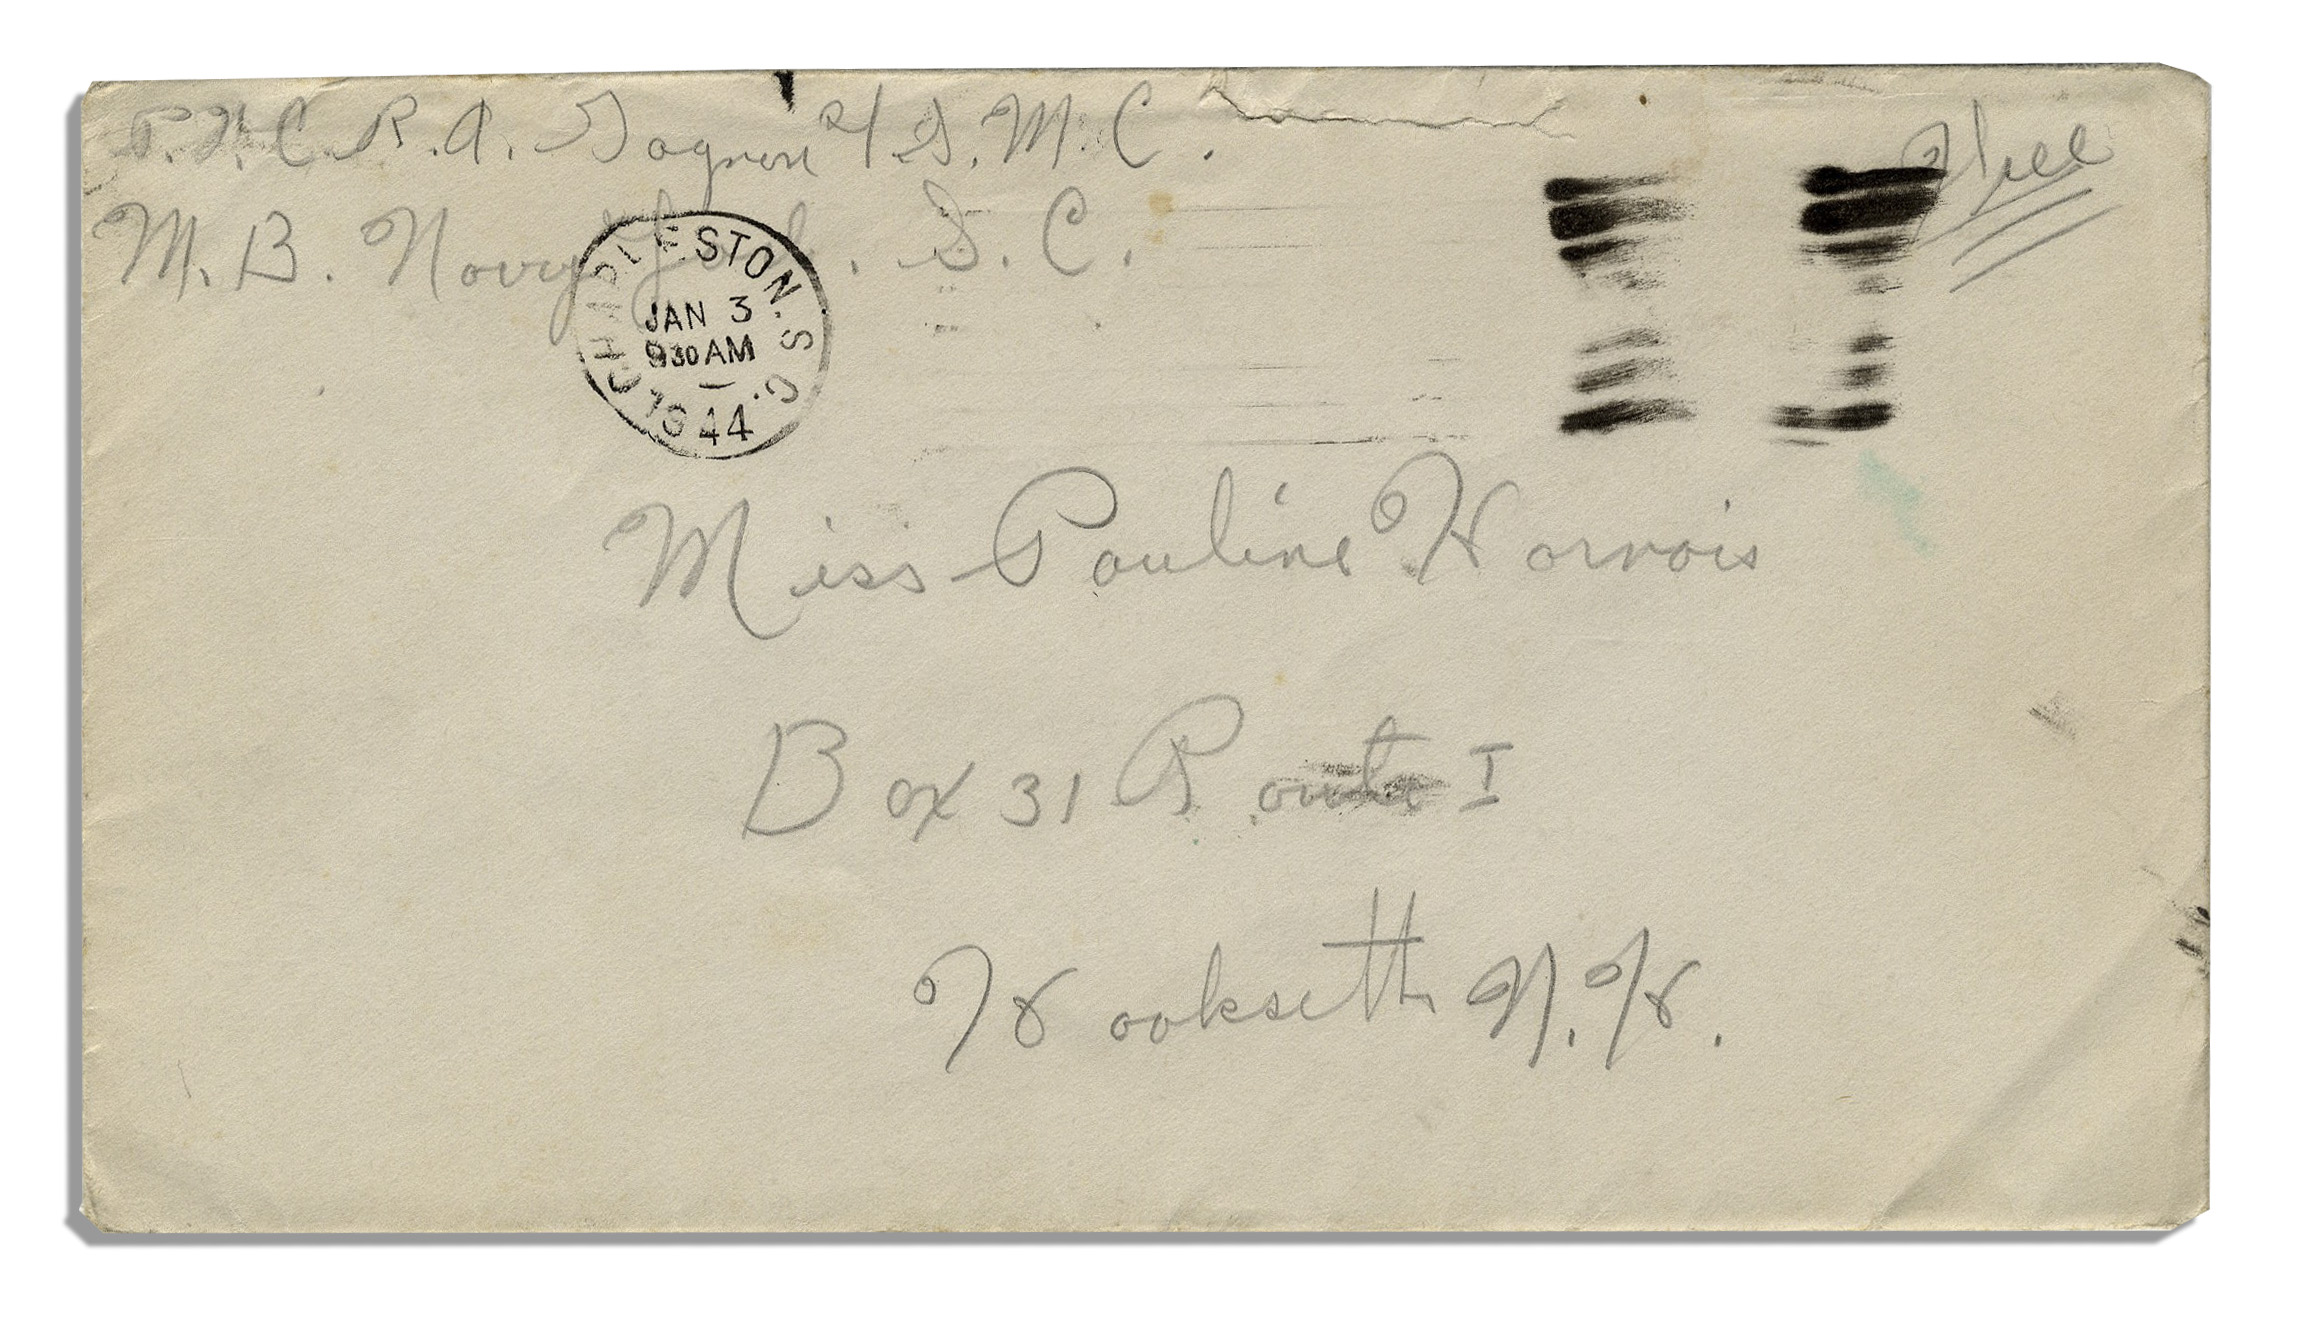 P.F.C. R. A. Gagnon USMC.
Free
M.B. Navy Yard. S.C.
CHARLESTON. S.C.
JAN 3
930 AM
1944
Miss Pauline Harnois
Box 31 Route I
Hooksett N.H.